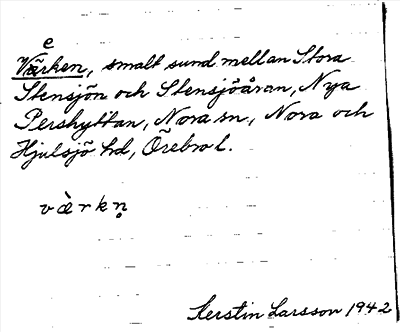 e
Värken, smalt sund mellan Stora
Stensjön och Stensjöåran, Nya
Pershyttan, Nora sn, Nora och
Hjulsjö hd, Örebro l.
v à r k n̥
Kerstin Larsson 1942